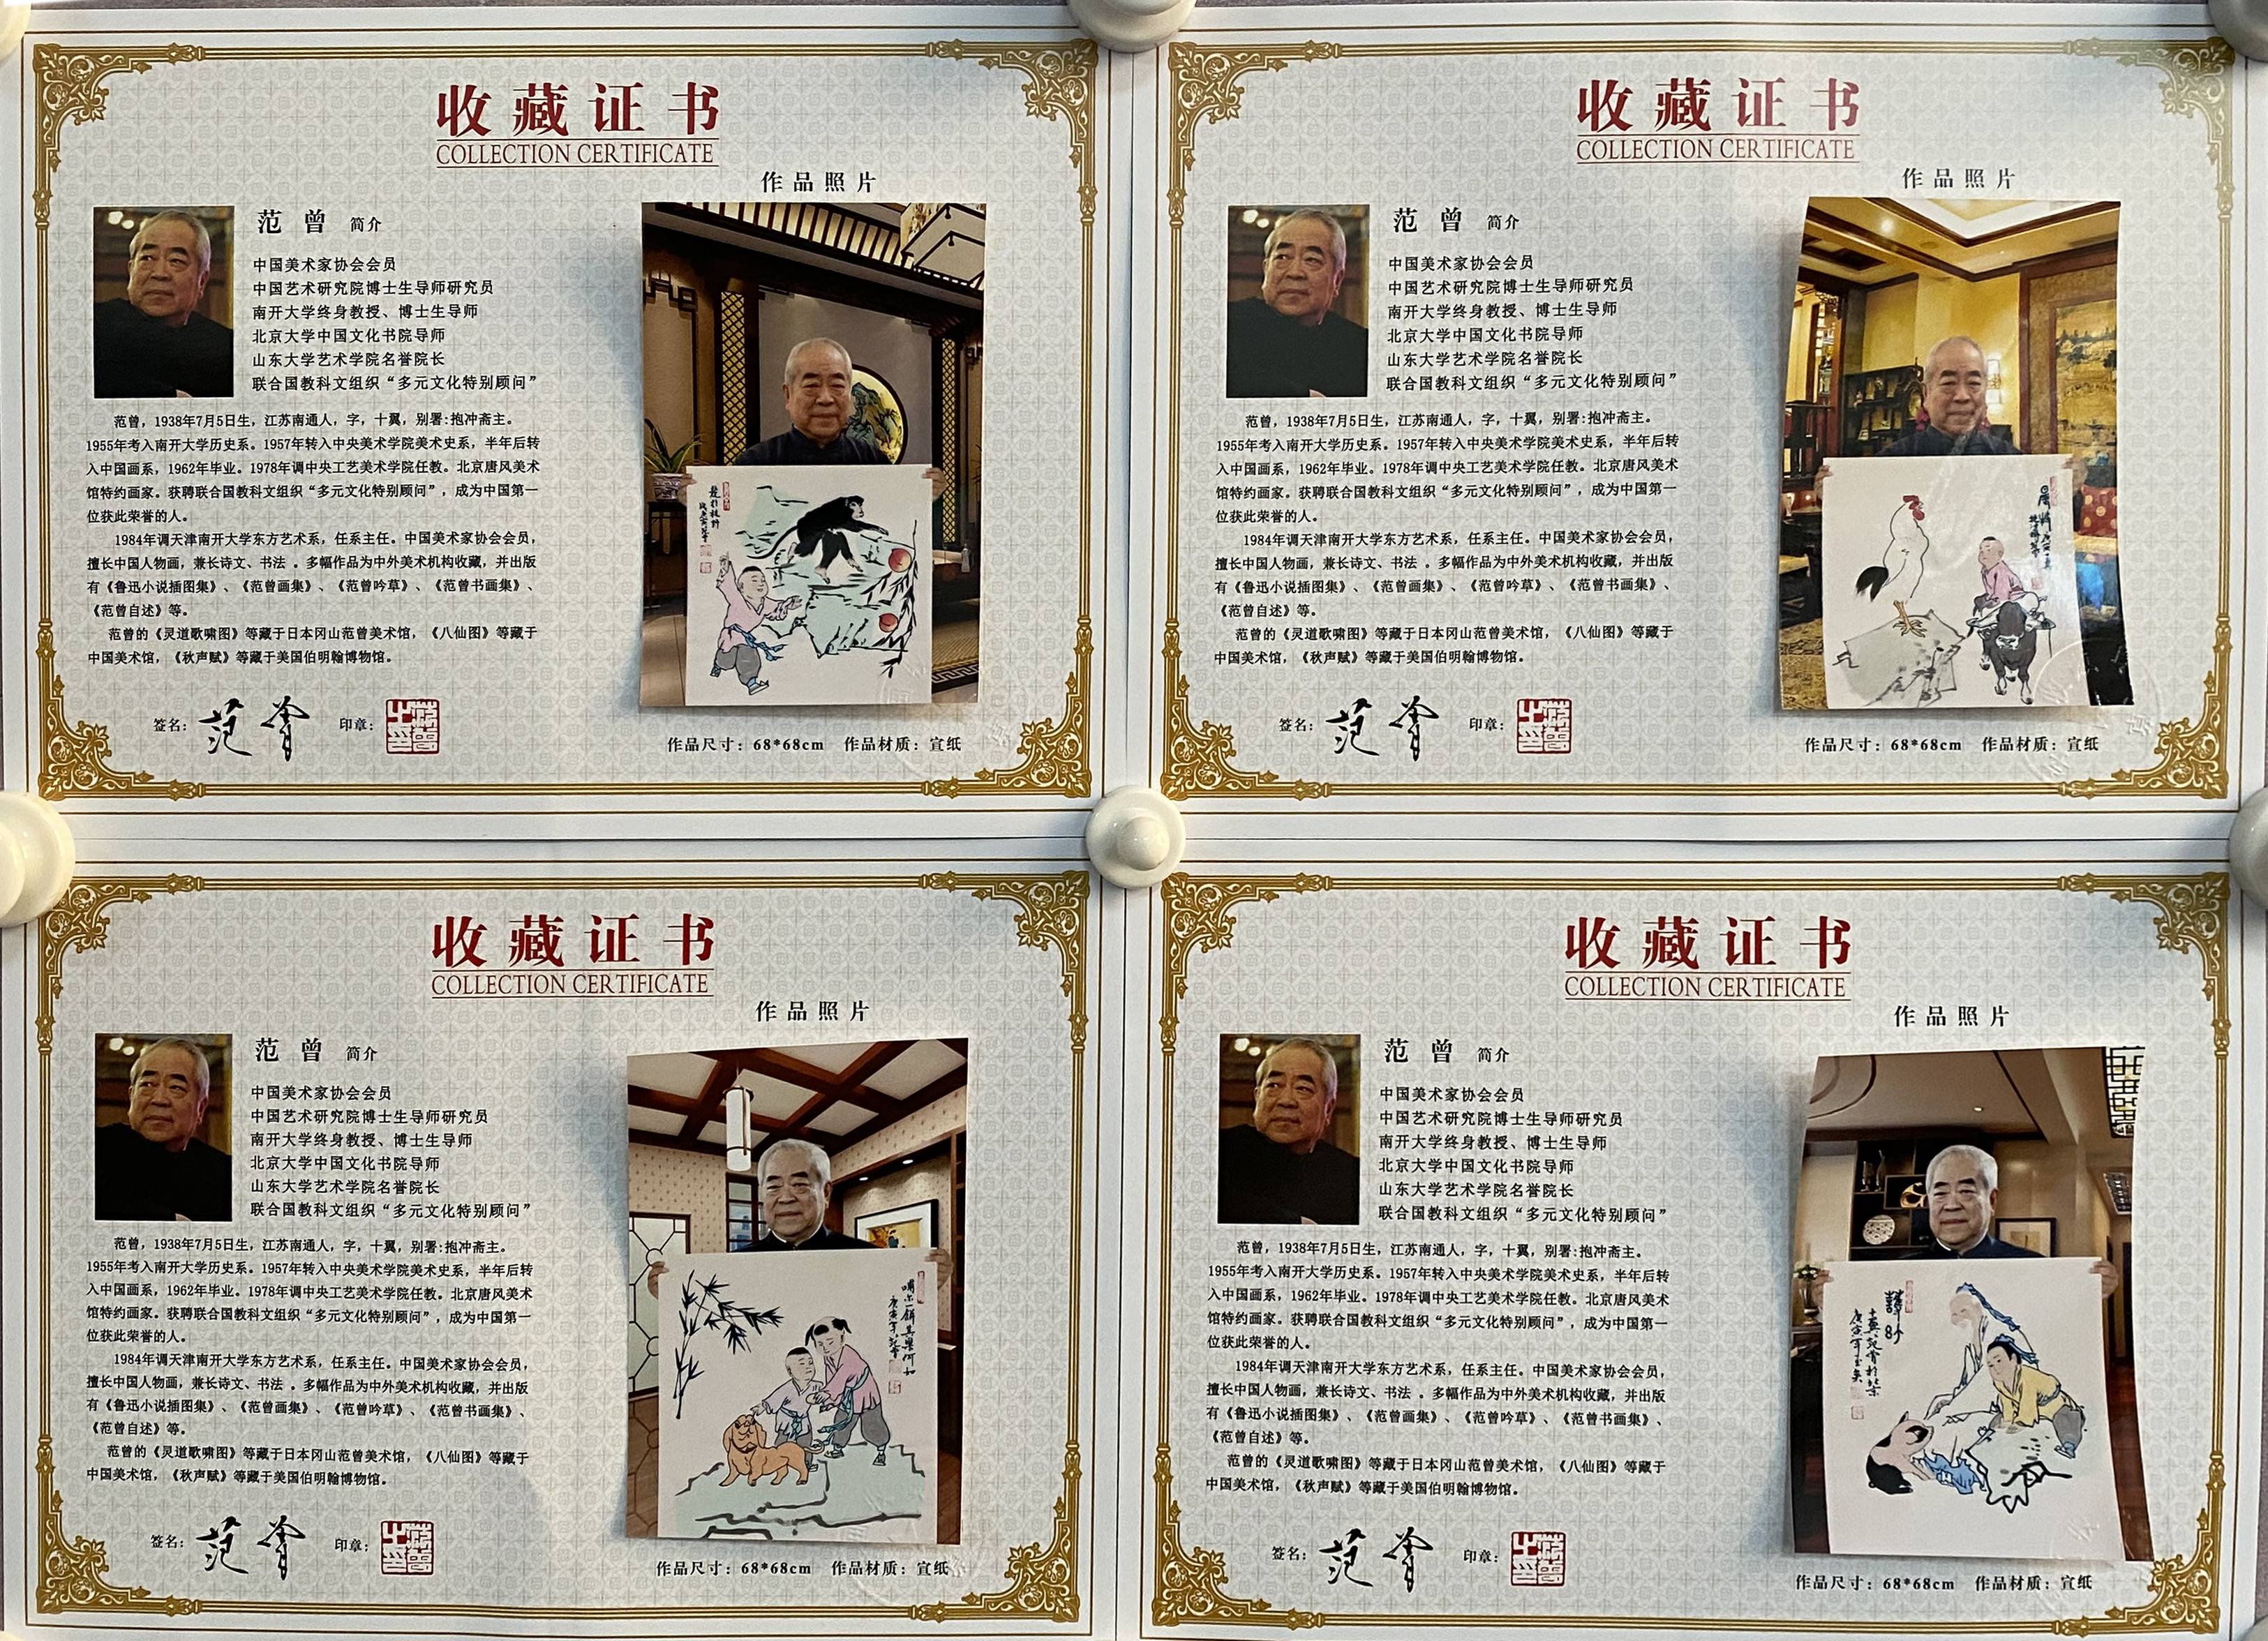 收藏证书
COLLECTION CERTIFICATE
作品照片
范曾 简介
中国美术家协会会员
中国艺术研究院博士生导师研究员
南开大学终身教授、博士生导师
北京大学中国文化书院导师
山东大学艺术学院名誉院长
联合国教科文组织“多元文化特别顾问”
范曾，1938年7月5日生，江苏南通人，字，十翼，别署:抱冲斋主。
1955年考入南开大学历史系。1957年转入中央美术学院美术史系，半年后转
入中国画系，1962年毕业。1978年调中央工艺美术学院任教。北京唐风美术
馆特约画家。获聘联合国教科文组织“多元文化特别顾问”，成为中国第一
位获此荣誉的人。
1984年调天津南开大学东方艺术系，任系主任。中国美术家协会会员，
擅长中国人物画，兼长诗文、书法 。多幅作品为中外美术机构收藏，并出版
有《鲁迅小说插图集》、《范曾画集》、《范曾吟草》、《范曾书画集》、
《范曾自述》等。
范曾的《灵道歌啸图》等藏于日本冈山范曾美术馆，《八仙图》等藏于
中国美术馆，《秋声赋》等藏于美国伯明翰博物馆。
签名：范曾 印章：
作品尺寸：68*68cm 作品材质：宣纸
收藏证书
COLLECTION CERTIFICATE
作品照片
范曾 简介
中国美术家协会会员
中国艺术研究院博士生导师研究员
南开大学终身教授、博士生导师
北京大学中国文化书院导师
山东大学艺术学院名誉院长
联合国教科文组织“多元文化特别顾问”
范曾，1938年7月5日生，江苏南通人，字，十翼，别署:抱冲斋主。
1955年考入南开大学历史系。1957年转入中央美术学院美术史系，半年后转
入中国画系，1962年毕业。1978年调中央工艺美术学院任教。北京唐风美术
馆特约画家。获聘联合国教科文组织“多元文化特别顾问”，成为中国第一
位获此荣誉的人。
1984年调天津南开大学东方艺术系，任系主任。中国美术家协会会员，
擅长中国人物画，兼长诗文、书法 。多幅作品为中外美术机构收藏，并出版
有《鲁迅小说插图集》、《范曾画集》、《范曾吟草》、《范曾书画集》、
《范曾自述》等。
范曾的《灵道歌啸图》等藏于日本冈山范曾美术馆，《八仙图》等藏于
中国美术馆，《秋声赋》等藏于美国伯明翰博物馆。
签名：范曾 印章：
作品尺寸：68*68cm 作品材质：宣纸
收藏证书
COLLECTION CERTIFICATE
作品照片
范曾 简介
中国美术家协会会员
中国艺术研究院博士生导师研究员
南开大学终身教授、博士生导师
北京大学中国文化书院导师
山东大学艺术学院名誉院长
联合国教科文组织“多元文化特别顾问”
范曾，1938年7月5日生，江苏南通人，字，十翼，别署:抱冲斋主。
1955年考入南开大学历史系。1957年转入中央美术学院美术史系，半年后转
入中国画系，1962年毕业。1978年调中央工艺美术学院任教。北京唐风美术
馆特约画家。获聘联合国教科文组织“多元文化特别顾问”，成为中国第一
位获此荣誉的人。
1984年调天津南开大学东方艺术系，任系主任。中国美术家协会会员，
擅长中国人物画，兼长诗文、书法 。多幅作品为中外美术机构收藏，并出版
有《鲁迅小说插图集》、《范曾画集》、《范曾吟草》、《范曾书画集》、
《范曾自述》等。
范曾的《灵道歌啸图》等藏于日本冈山范曾美术馆，《八仙图》等藏于
中国美术馆，《秋声赋》等藏于美国伯明翰博物馆。
签名：范曾 印章：
作品尺寸：68*68cm 作品材质：宣纸
收藏证书
COLLECTION CERTIFICATE
作品照片
范曾 简介
中国美术家协会会员
中国艺术研究院博士生导师研究员
南开大学终身教授、博士生导师
北京大学中国文化书院导师
山东大学艺术学院名誉院长
联合国教科文组织“多元文化特别顾问”
范曾，1938年7月5日生，江苏南通人，字，十翼，别署:抱冲斋主。
1955年考入南开大学历史系。1957年转入中央美术学院美术史系，半年后转
入中国画系，1962年毕业。1978年调中央工艺美术学院任教。北京唐风美术
馆特约画家。获聘联合国教科文组织“多元文化特别顾问”，成为中国第一
位获此荣誉的人。
1984年调天津南开大学东方艺术系，任系主任。中国美术家协会会员，
擅长中国人物画，兼长诗文、书法 。多幅作品为中外美术机构收藏，并出版
有《鲁迅小说插图集》、《范曾画集》、《范曾吟草》、《范曾书画集》、
《范曾自述》等。
范曾的《灵道歌啸图》等藏于日本冈山范曾美术馆，《八仙图》等藏于
中国美术馆，《秋声赋》等藏于美国伯明翰博物馆。
签名：范曾 印章：
作品尺寸：68*68cm 作品材质：宣纸